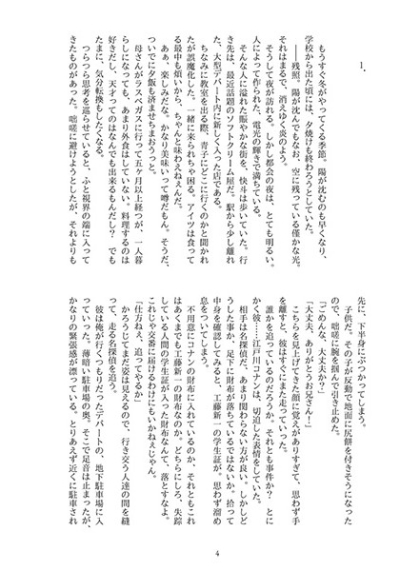 1、
もうすぐ冬がやってくる季節。陽が沈むのも早くなり、
学校から出た頃には、夕焼けも終わろうとしていた。
――残照。陽が沈んでもなお、空に残っている僅かな光。
それはまるで、消えゆく炎のよう。
そうして夜が訪れる。しかし都会の夜は、とても明るい。
人によって作られた、電光の輝きで満ちている。
そんな人に溢れた賑やかな街を、快斗は歩いていた。行
き先は、最近話題のソフトクリーム屋だ。駅から少し離れ
た、大型デパート内に新しく入った店である。
ちなみに教室を出る際、青子にどこに行くのかと聞かれ
たが誤魔化した。一緒に来られちゃ困る。アイツは食って
る最中も煩いから、ちゃんと味わえねぇんだ。
あぁ、楽しみだな。かなり美味いって噂だもん。そうだ、
ついでに夕飯も済ませちまおうっと。
母さんがラスベガスに行って五ヶ月以上経つが、一人暮
らしになっても、あまり外食はしていない。料理するのは
好きだし、天才ってのはなんでも出来るもんだし？　でも
たまに、気分転換もしたくなる。
つらつら思考を巡らせていると、ふと視界の端に入って
きたものがあった。咄嗟に避けようとしたが、それよりも
先に、下半身にぶつかってしまう。
子供だ。その子が反動で地面に尻餅を付きそうになった
ので、咄嗟に腕を掴んで引き止めた。
「ごめんな、大丈夫か？」
「大丈夫、ありがとうお兄さん！」
こちらを見上げてきた顔に覚えがありすぎて、思わず手
を離すと、彼はすぐにまた走っていった。
誰かを追っているのだろうか。それとも事件か？　とに
かく彼……江戸川コナンは、切迫した表情をしていた。
相手は名探偵だ、あまり関わらない方が良い。しかしど
うした事か、足下に財布が落ちているではないか。拾って
中身を確認してみると、工藤新一の学生証が。思わず溜め
息をついてしまう。
不用意にコナンの財布に入れているのか、それともこれ
はあくまでも工藤新一の財布なのか。どちらにしろ、失踪
している人間の学生証が入った財布なんて、落とすなよ。
これじゃ交番に届けるわけにもいかねぇじゃん。
「仕方ねぇ、追ってやるか」
かろうじてまだ姿は見えるので、行き交う人達の間を縫
って、走る名探偵を追う。
彼は俺が行くつもりだったデパートの、地下駐車場に入
っていった。薄暗い駐車場の奥。そこで足音は止まったが、
かなりの緊張感が漂っている。とりあえず近くに駐車され
4